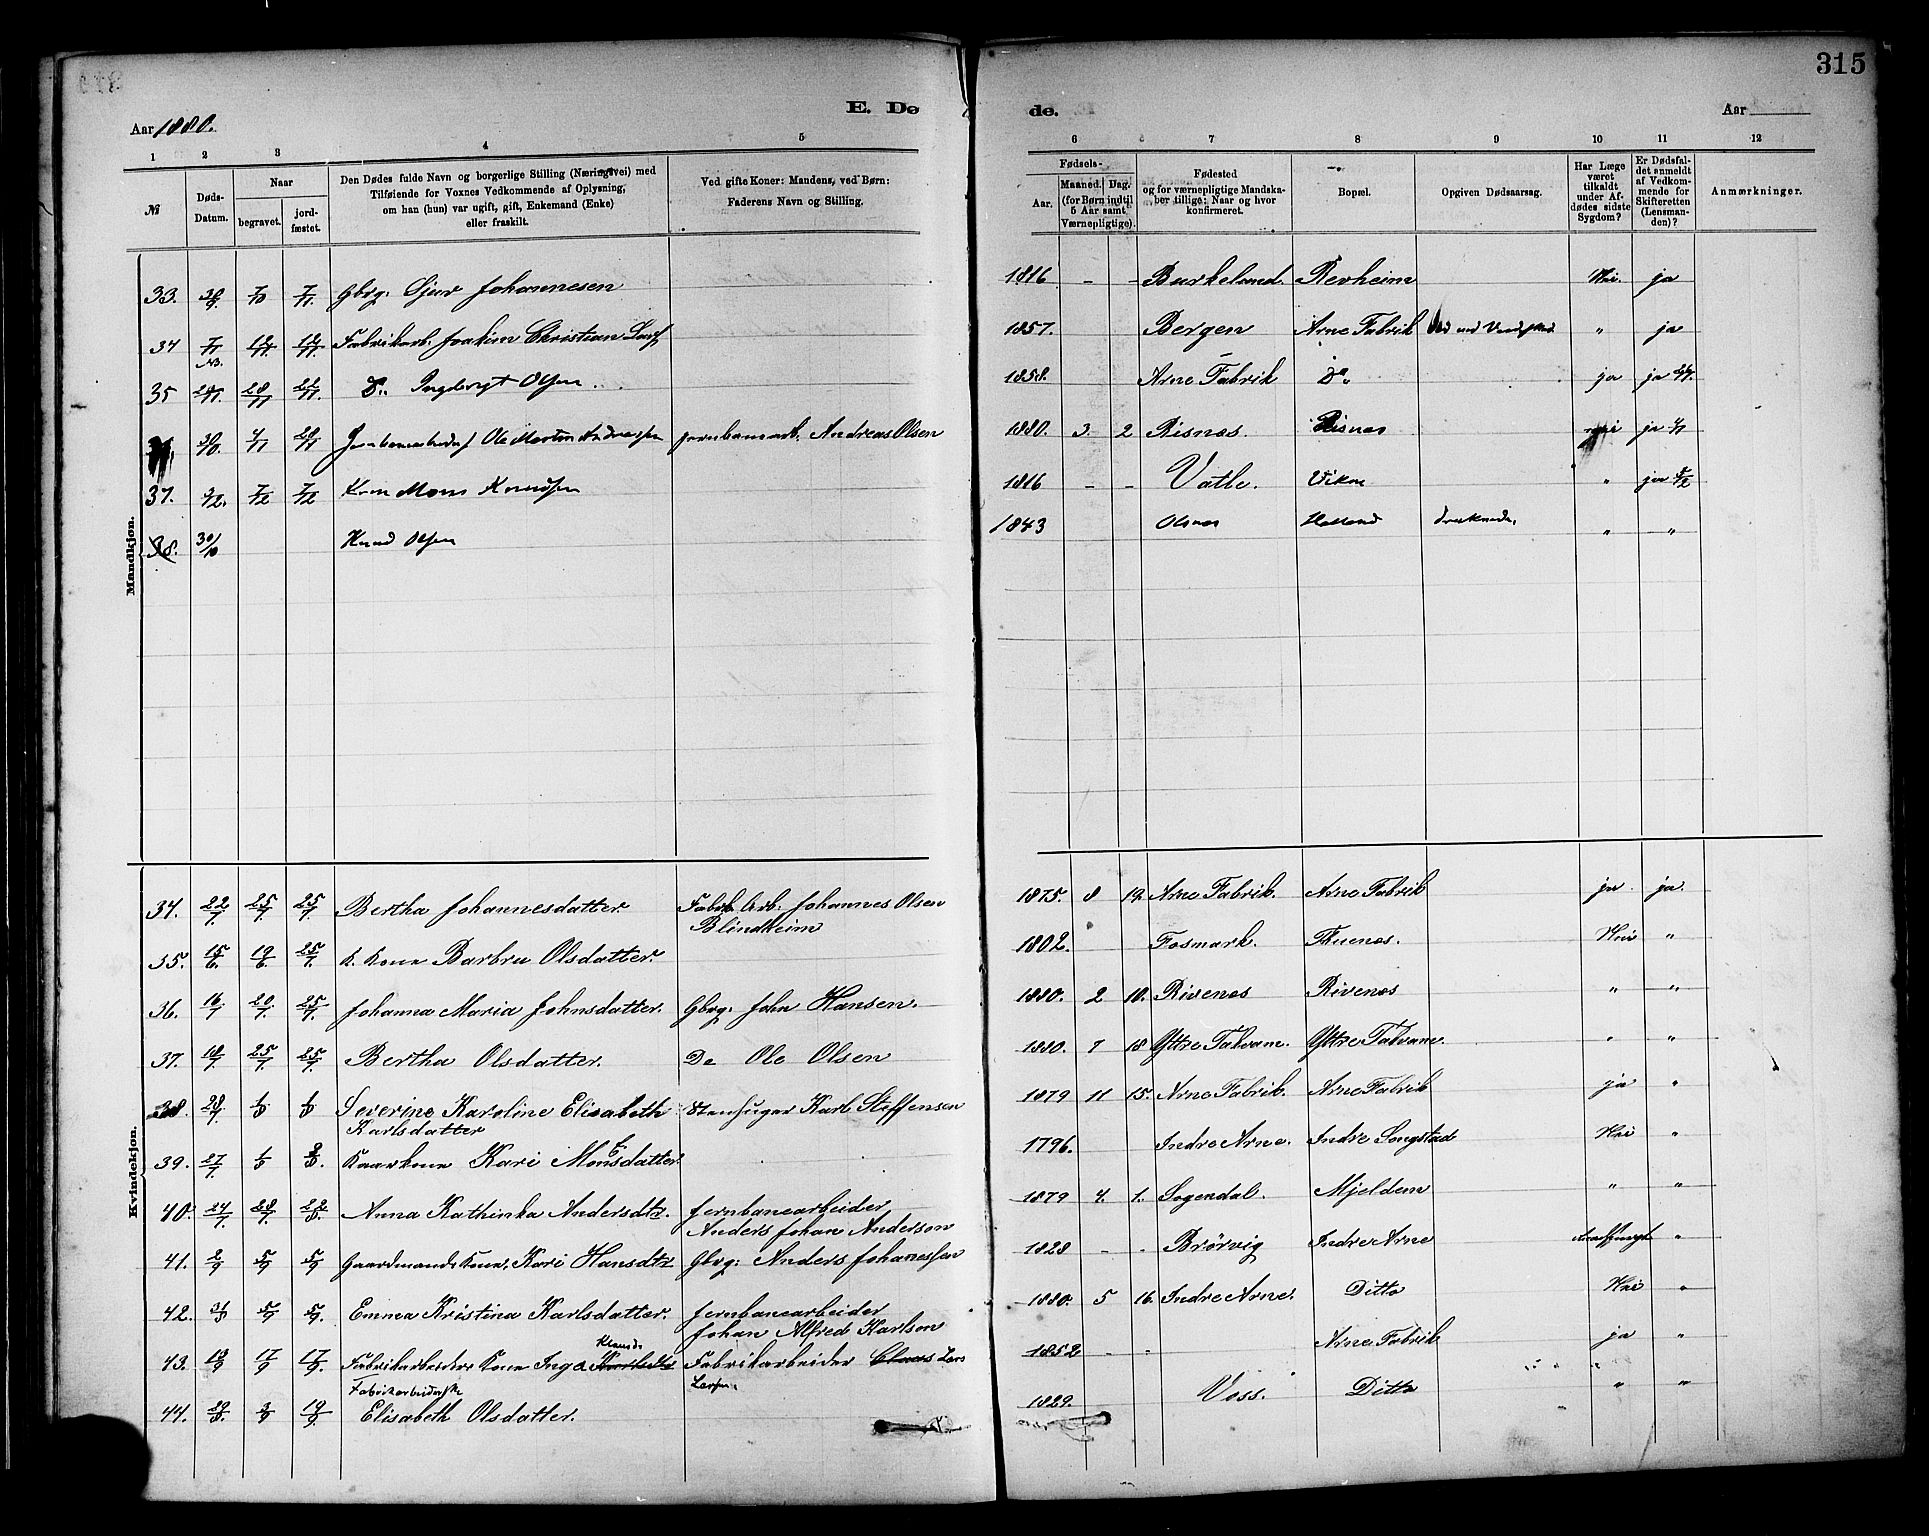 315
E. Dø de.
Aar 1880.
Aar
1 2 3 4 5 6 7 8 9 10 11 12
№
Døds-Datum.
Naar
begravet.
jord-fæstet.
Den Dødes fulde Navn og borgerlige Stilling (Næringsvei) med
Tilføiende for Voxnes Vedkommende af Oplysning,
om han (hun) var ugift, gift, Enkemand (Enke)
eller fraskilt.
Ved gifte Koner: Mandens, ved Børn:
Faderens Navn og Stilling.
Fødsels-
Aar.
Maaned. Dag.
(for Børn indtil
5 Aar samt
Værnepligtige).
Fødested
og for værnepligtige Mandska-
ber tillige: Naar og hvor
konfirmeret.
Bopæl.
Opgiven Dødsaarsag.
Har Læge
været
tilkaldt
under Af-
dødes sidste
Sygdom?
Er Dødsfal-
det anmeldt
af Vedkom-
mende for
Skifteretten
(Lensman-
den)?
Anmærkninger.
Mandkjøn.
33. 30/9 7/10 7/11 Gbrg. Sjur Johannesen 1816 - - Burkeland. Revheim Nei. ja
34 7/11 12/11 12/11 Fabrikarb. Joakim Christian 1857. Bergen Arne Fabrik " ja
35 28/11 Do. Ingebrigt Olsen. 1858. Arne Fabrik Do. ja ja
Ole Morten Andreassen Jernbanearb. Andreas Olsen 1880. 3. 2 Risnes. Risnes nei ja
37. 3/12. 7/12 7/12 Mons Knudsen 1816 - - Vatle. Viken " ja
38. 30/10 Knud Olsen 1843 Olsnes Helland druknede. " "
Kvindekjøn.
34. 22/7. 25/7 25/7 Bertha Johannesdatter. Fabrk. Arb: Johannes Olsen 1875. 8 19. Arne Fabrik. Arne Fabrik ja. ja.
Blindheim
35. 15/6. 19/6. 25/7. K. Kone Barbru Olsdatter. 1802. Fosmark. Thuenes. Nei "
36. 16/7 20/7. 25/7. Johanna Maria Johnsdatter. Gbrg. John Hansen. 1880. 2 10. Rivenes Rivenes " "
37. 18/7. 25/7. 25/7. Bertha Olsdatter. Do Ole Olsen 1880. 7 18 Yttre Takvam. Yttre Takvam. " "
38. 28/7. 1/8 1/8 Severine Karoline Elisabeth Stenhuger Karl Steffensen 1879 11 15. Arne Fabrik. Arne Fabrik ja "
Karlsdatter
39. 27/7. 1/8 Kaarkone Kari Monsdatter. 1796. Indre Arne. Indre Songstad Nei "
40. 24/7. 28/7. 22/8. Anna Kathinka Andersdtr. Jernbanearbeider 1879 4. 1. Sogendal. Mjeldem " "
Anders Johan Anderson
41. 2/9 5/9 5/9 Gaardmands Kone, Kari Hansdtr Gbrg: Anders Johanessen 1828 - - Brörvig Indre Arne "
42. 31/8 5/9 5/9. Emma Kristina Karlsdatter. Jernbanearbeider 1880. 5 16. Indre Arne. Ditto Nei "
Johan Alfred Karlson
43. 13/9 17/9 17/9. Fabrikarbeiders Kone Inga Fabrikarbeider Claus 1852 - - Arne Fabrik ja "
Larsen.
Fabrikarbeiderske
44. 29/8. 3/9 19/9. Elisabeth Olsdatter. 1829. Voss. Ditto " "